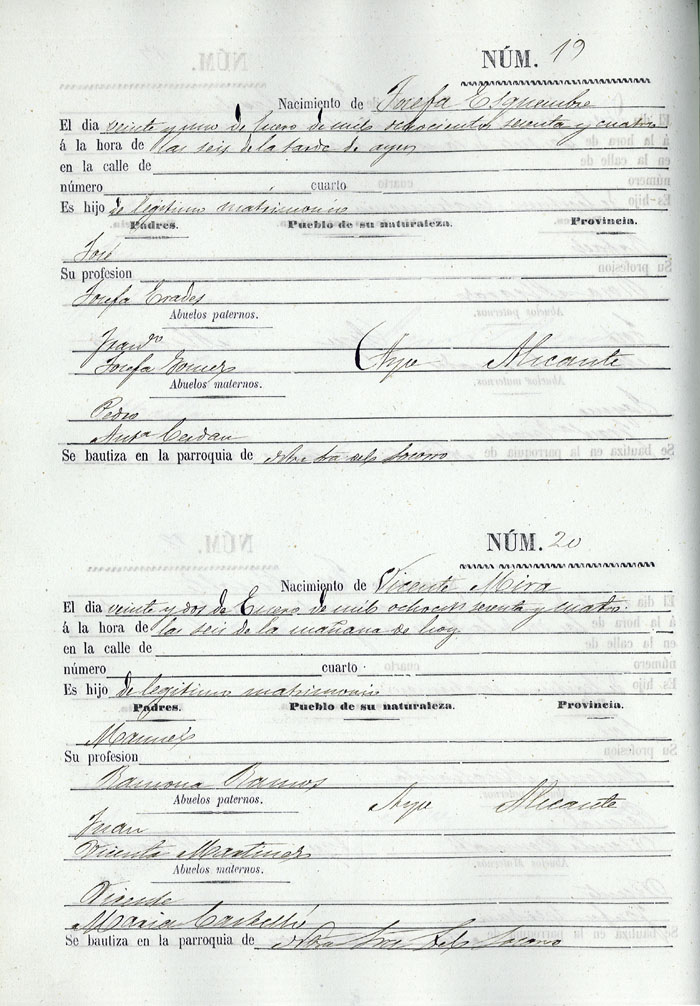 NÚM. 19
Nacimiento de Josefa Esquembre
El dia veinte y uno de Enero de mil ochocientos sesenta y cuatro
á la hora de las seis de la tarde de ayer
en la calle de
número cuarto
Es hijo de legitimo matrimonio
Padres. Pueblo de su naturaleza. Provincia.
José
Su profesion
Josefa Erades
Abuelos paternos.
Josefa Gomes Aspe Alicante
Abuelos maternos.
Pedro
Antª Cerdan
Se bautiza en la parroquia de Ntra Sra del Socorro
NÚM. 20
Nacimiento de Vicente Mira
El dia veinte y dos de Enero de mil ochocos sesenta y cuatro
á la hora de las seis de la mañana de hoy
en la calle de
número cuarto
Es hijo de legitimo matrimonio
Padres. Pueblo de su naturaleza. Provincia.
Manuel
Su profesion
Ramona Ramos
Abuelos paternos. Aspe Alicante
Juan
Vicenta Martines
Abuelos maternos.
Vicente
Maria Castelló
Se bautiza en la parroquia de Ntra Sra del Socorro